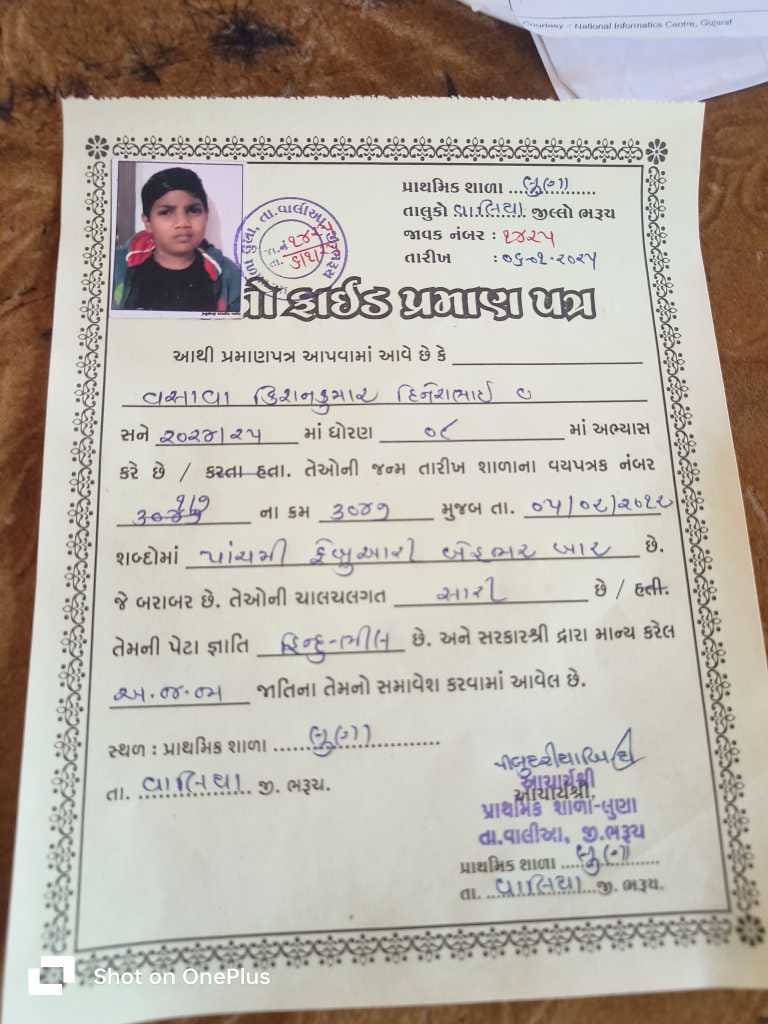 Courtesy :- National Informatics Centre, Gujarat
પ્રાથમિક શાળા ...લુણા...
તાલુકો વાલિયા. જીલ્લો ભરૂચ
જાવક નંબર : ૧૪૨૫
તારીખ :
બોનોફાઈડ પ્રમાણ પત્ર
આથી પ્રમાણપત્ર આપવામાં આવે છે કે
વસાવા કિશનકુમાર દિનેશભાઈ
સને ૨૦૨૪/૨૫ માં ધોરણ ૦૮ માં અભ્યાસ
કરે છે / કરતા હતા. તેઓની જન્મ તારીખ શાળાના વયપત્રક નંબર
૧/૭ ના ક્રમ ૩૦૪૭ મુજબ તા. ૦૫/૦૨/૨૦૧૨
શબ્દોમાં પાંચમી ફેબ્રુઆરી બેહજાર બાર છે.
જે બરાબર છે. તેઓની ચાલચલગત સારી છે / હતી.
તેમની પેટા જ્ઞાતિ હિન્દુ-ભીલ છે. અને સરકારશ્રી દ્રારા માન્ય કરેલ
અ.જ.જા જાતિના તેમનો સમાવેશ કરવામાં આવેલ છે.
સ્થળ : પ્રાથમિક શાળા ...લુણા...
તા. વાલિયા. જી. ભરૂચ.
આચાર્યશ્રી
આચાર્યશ્રી,
પ્રાથમિક શાળા-લુણા
તા.વાલીઆ, જી.ભરૂચ
પ્રાથમિક શાળા ...લુણા...
તા. વાલિયા...જી. ભરૂચ.
Shot on OnePlus